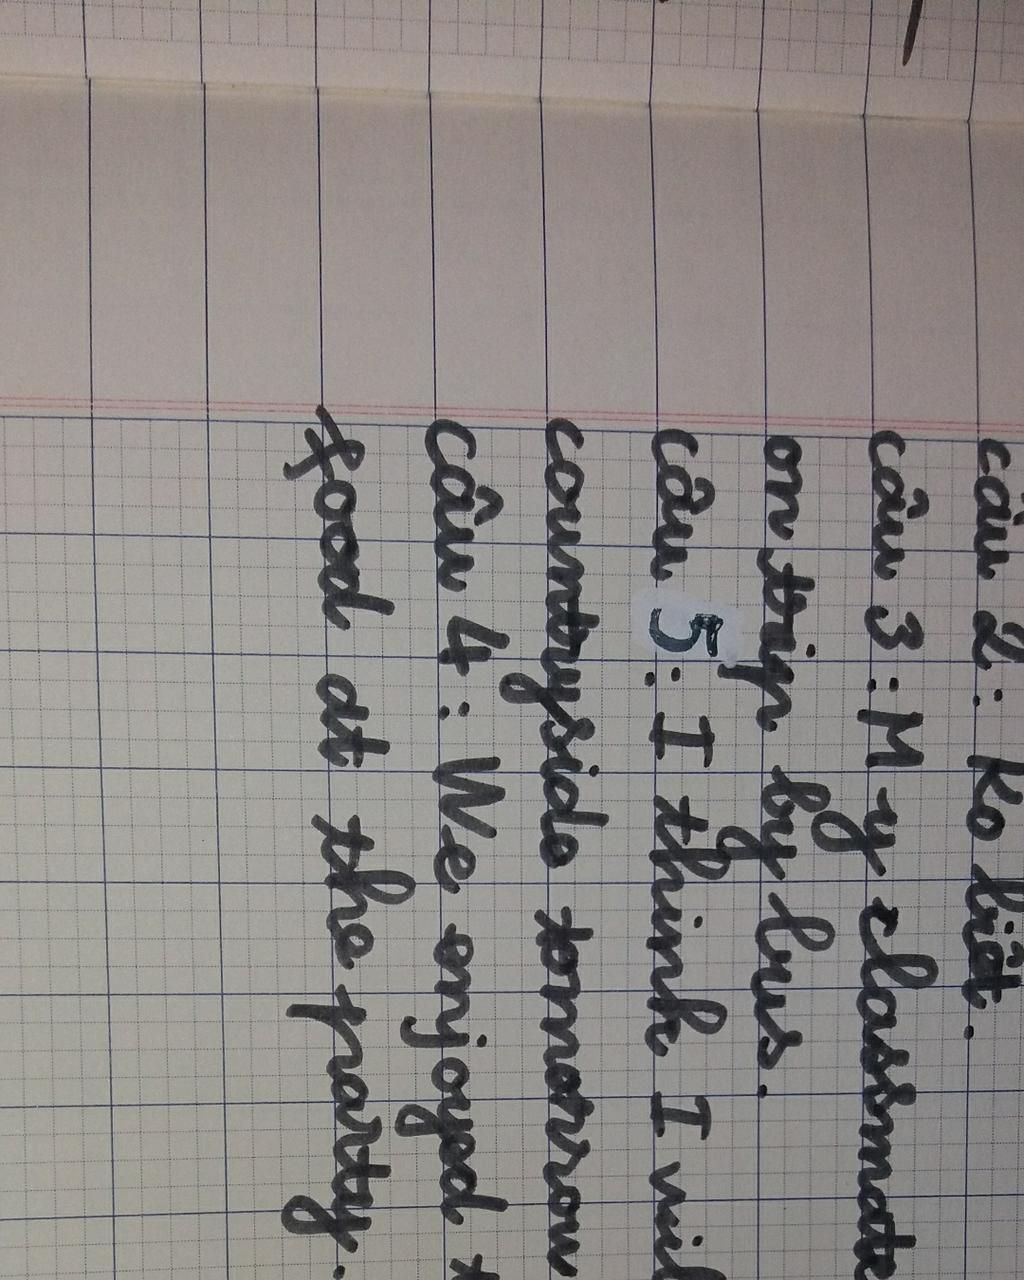 câu 2: Ko biết.
câu 3: My classmate
on trip by bus.
câu 5: I think I
countryside tomorrow
câu 4: We enjoyed
food at the party.